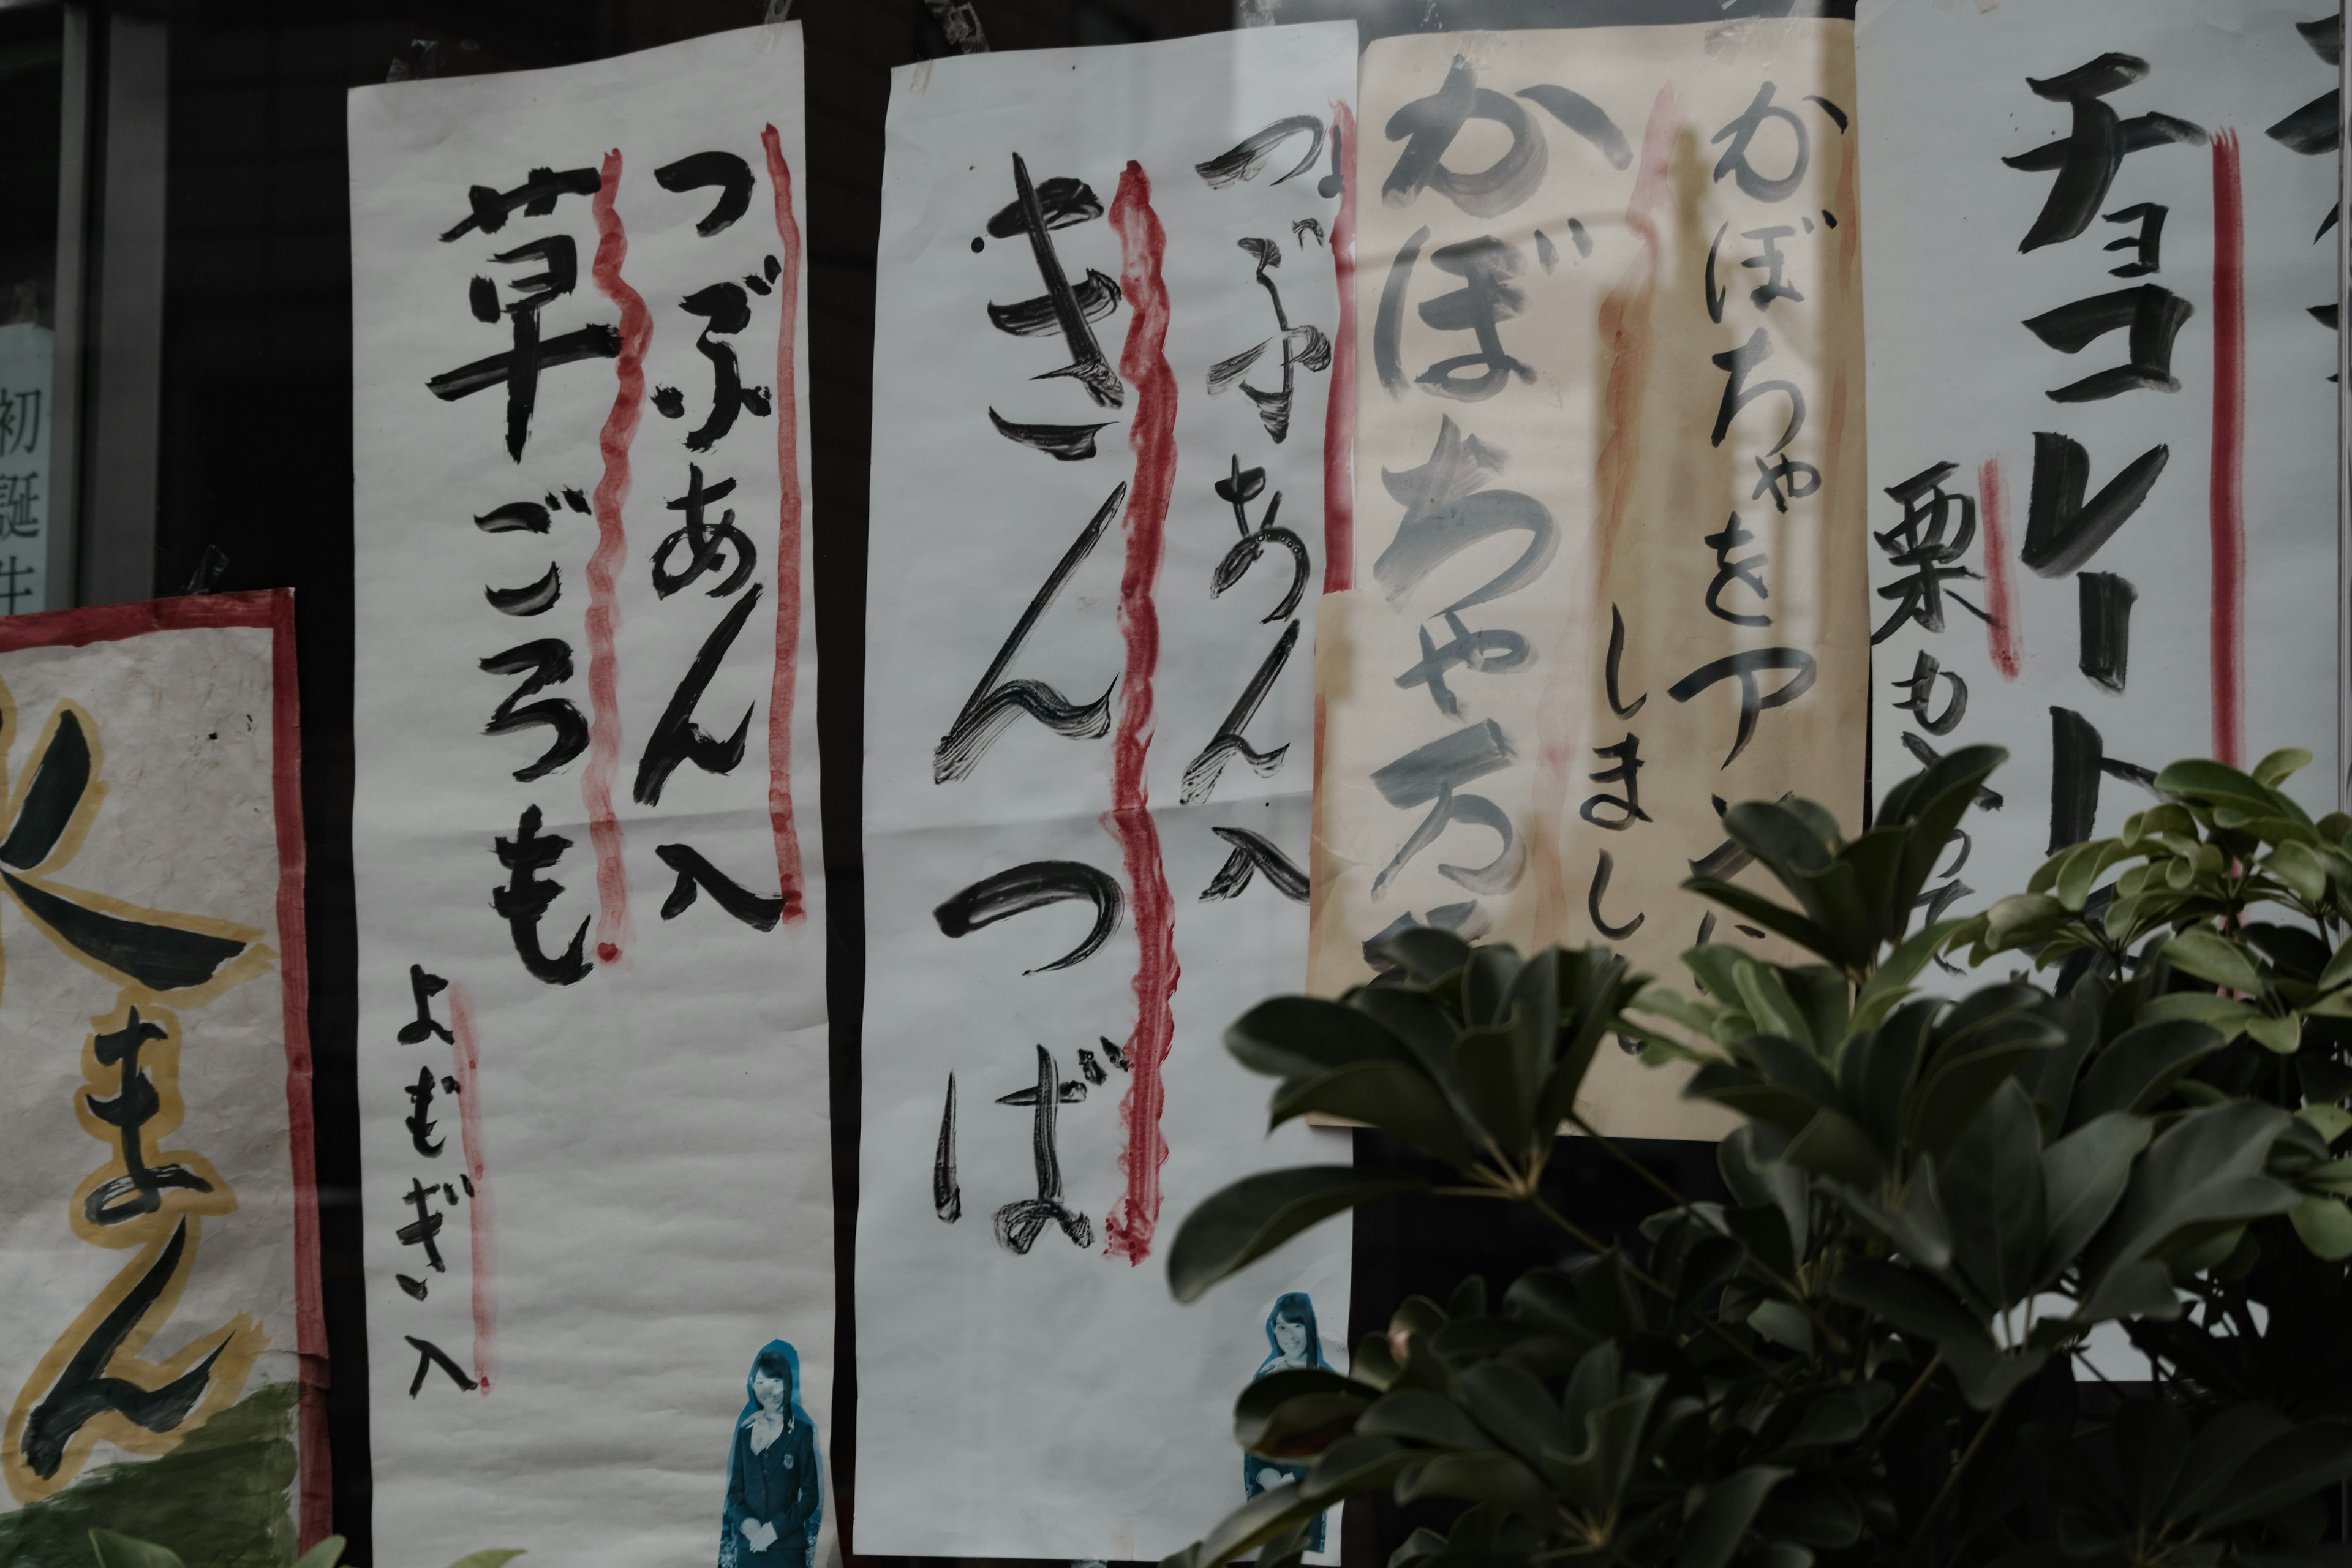 チョコレート
栗も入って
かぼちゃをアンに
しまし
かぼちゃ万
つぶあん入
きんつば
つぶあん入
草ごろも
よもぎ入
くまん
初誕生